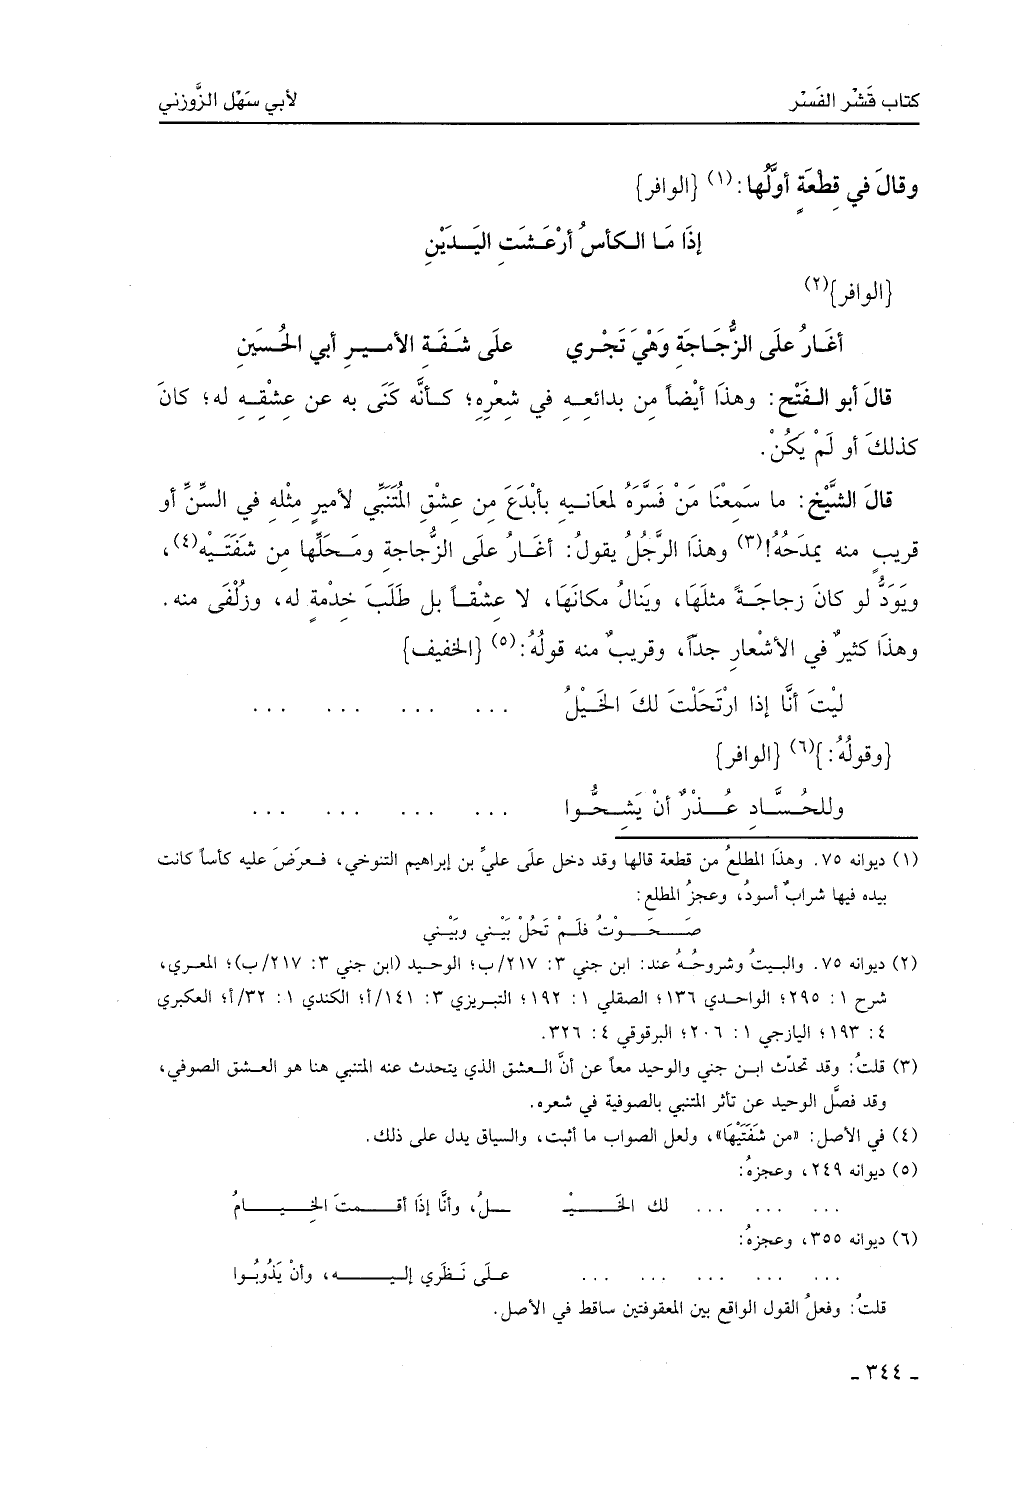 كتاب قَشْر الفَسْر لأبي سَهْل الزَّوزني
وقالَ في قِطْعَةٍ أوَّلُها:(١) {الوافر}
إذَا مَا الكأسُ أرْعَشَتِ اليَدَيْنِ
{الوافر}(٢)
أغَارُ علَى الزُّجَاجَةِ وَهْيَ تَجْري علَى شَفَةِ الأميرِ أبي الحُسَينِ
قالَ أبو الفَتْحِ: وهذَا أيْضاً مِن بدائعِهِ في شعْرِهِ؛ كأنَّه كَنَى به عن عِشْقِهِ له؛ كانَ
كذلكَ أو لَمْ يَكُنْ.
قالَ الشَّيْخ: ما سَمِعْنَا مَنْ فَسَّرَهُ لمعَانيهِ بأبْدَعَ مِن عِشْقِ المُتَنَبِّي لأميرٍ مِثْلِهِ في السِّنِّ أو
قريبٍ منه يمدَحُهُ!(٣) وهذَا الرَّجُلُ يقولُ: أغَارُ علَى الزُّجاجةِ ومَحَلِّها من شَفَتَيْهِ(٤)،
ويَوَدُّ لو كانَ زجاجَةً مثلَهَا، وينَالُ مكانَهَا، لا عشْقاً بل طَلَبَ خِدْمةٍ له، وزُلْفَى منه.
وهذَا كثيرٌ في الأشْعارِ جدّاً، وقريبٌ منه قولُهُ:(٥) {الخفيف}
ليْتَ أنَّا إذا ارْتَحَلْتَ لكَ الخَيْلُ ... ... ... ...
{وقولُهُ:}(٦) {الوافر}
وللحُسَّادِ عُذْرٌ أنْ يَشِحُّوا ... ... ... ...
(١) ديوانه ٧٥. وهذَا المطلعُ من قطعة قالها وقد دخل علَى عليِّ بن إبراهيم التنوخي، فعرَضَ عليه كأساً كانت
بيده فيها شرابٌ أسودُ، وعجزُ المطلع:
صَحَوْتُ فلَمْ تَحُلْ بَيْني وبَيْني
(٢) ديوانه ٧٥. والبيتُ وشروحُهُ عند: ابن جني ٣: ٢١٧/ب؛ الوحيد (ابن جني ٣: ٢١٧/ب)؛ المعري،
شرح ١: ٢٩٥؛ الواحدي ١٣٦؛ الصقلي ١: ١٩٢؛ التبريزي ٣: ١٤١/أ؛ الكندي ١: ٣٢/أ؛ العكبري
٤: ١٩٣؛ اليازجي ١: ٢٠٦؛ البرقوقي ٤: ٣٢٦.
(٣) قلتُ: وقد تحدّث ابن جني والوحيد معاً عن أنَّ العشق الذي يتحدث عنه المتنبي هنا هو العشق الصوفي،
وقد فصَّل الوحيد عن تأثر المتنبي بالصوفية في شعره.
(٤) في الأصل: «من شَفَتَيْهَا»، ولعل الصواب ما أثبت، والسياق يدل على ذلك.
(٥) ديوانه ٢٤٩، وعجزهُ:
... ... ... لك الخَيْـ ـلُ، وأنَّا إذَا أقمتَ الخِيامُ
(٦) ديوانه ٣٥٥، وعجزهُ:
... ... ... ... ... علَى نَظَري إليه، وأنْ يَذُوبُوا
قلتُ: وفعلُ القول الواقع بين المعقوفتين ساقط في الأصل.
- ٣٤٤ -